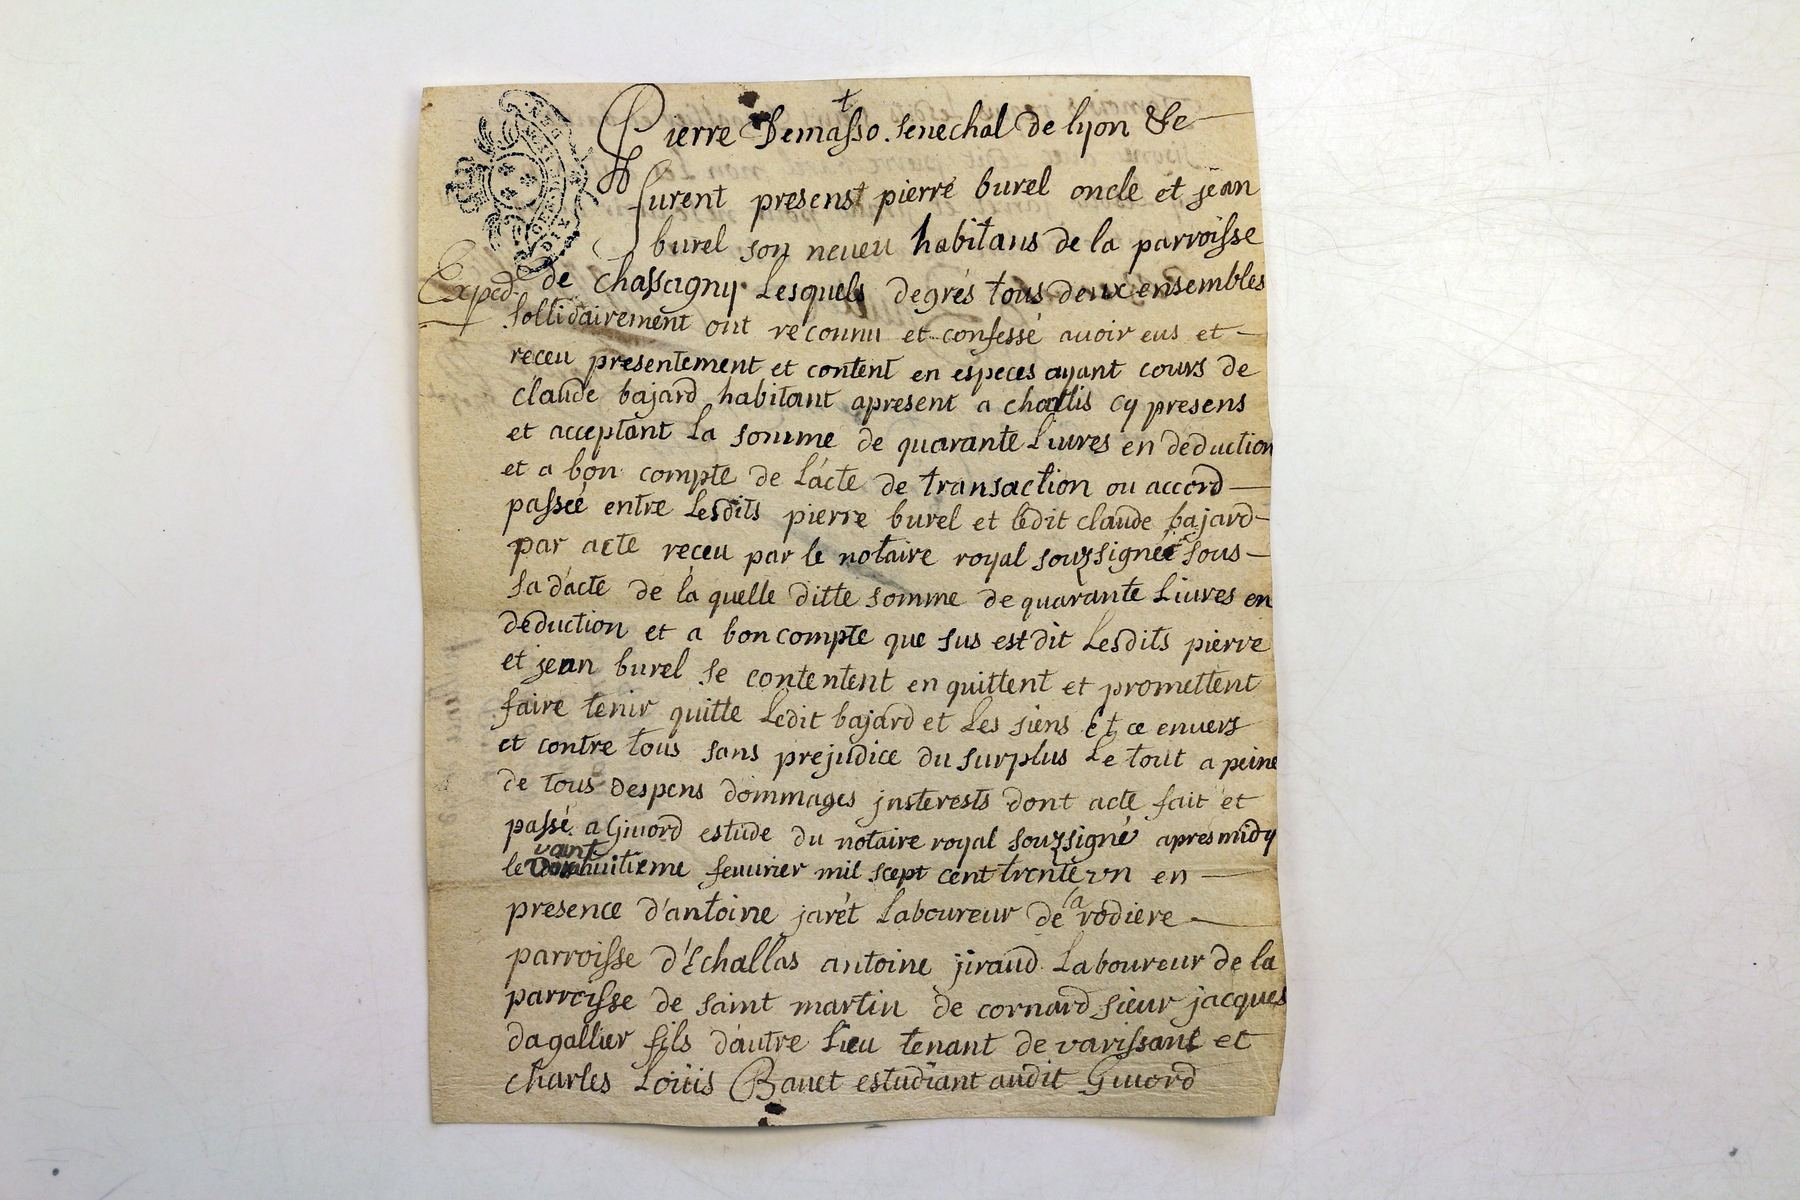 Pierre Demasso senechal de lyon &c
furent presenst pierre burel oncle et jean
burel son neueu habitans de la parroisse
Exped. de Chassagny Lesquels degrés tous deux ensembles
sollidairement ont reconnu et confessé auoir eus et
receu presentement et content en especes ayant cours de
claude bajard habitant apresent a challis cy presens
et acceptant La somme de quarante Liures en deduction
et a bon compte de L'acte de transaction ou accord
passeé entre Lesdits pierre burel et ledit claude bajard
par acte receu par le notaire royal souzsigneé sous
sa dacte de la quelle ditte somme de quarante Liures en
deduction et a bon compte que sus est dit Lesdits pierre
et jean burel se contentent en quittent et promettent
faire tenir quitte Ledit bajard et Les siens et ce enuers
et contre tous sans prejudice du surplus Le tout a peine
de tous despens dommages jnsterests dont acte fait et
passé a Giuord estude du notaire royal souzsigné apres midy
vant
le huitieme feuurier mil scept cent trente vn en
presence d'antoine jarét Laboureur de la rodiere
parroisse d'Echallas antoine jiraud Laboureur de la
parroisse de saint martin de cornard sieur jacques
dagallier fils d'autre Lieu tenant de varissant et
charles Loüis Bauet estudiant audit Giuord